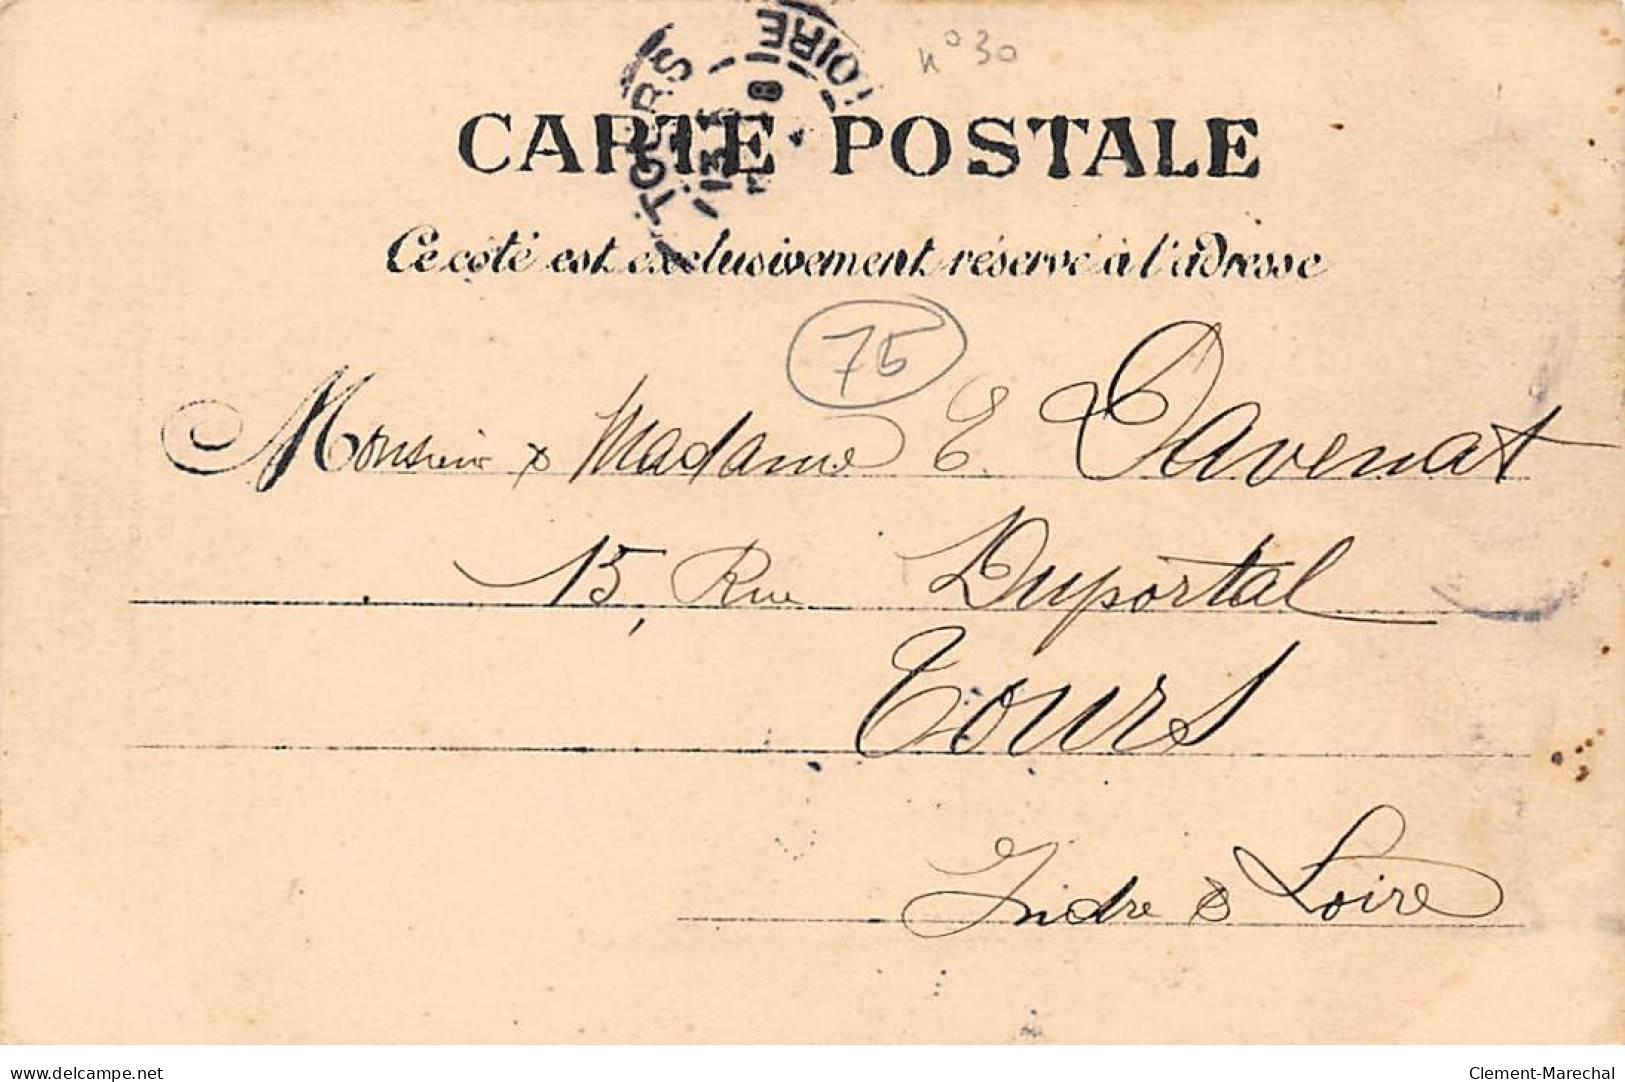 n° 30
TOURS
LOIRE
CARTE POSTALE
Ce côté est exclusivement réservé à l'adresse
75
Monsieur & Madame E. Davenat
15, Rue Duportal
Tours
Indre & Loire
www.delcampe.net
Clement-Marechal